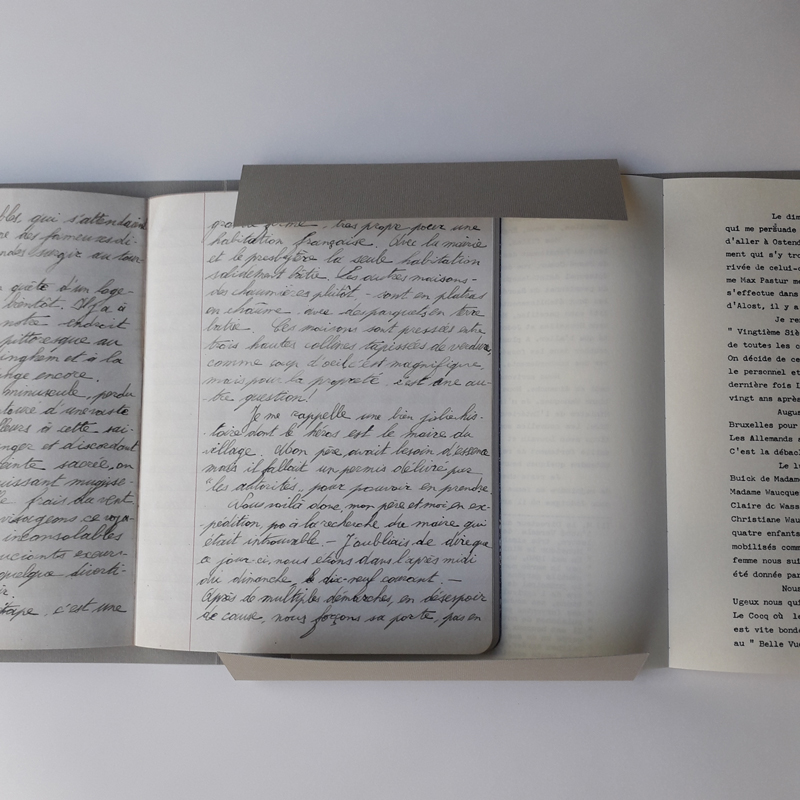 bles qui s'attendaient
ces fameuses di-
surgir au tour-
quête d'un loge-
bientôt. Il y a à
notre endroit
pittoresque au
et à la
encore.
minuscule, perdu
d'une vaste
à cette sai-
et discordant
sacrée, on
puissant mugisse-
frais du vent
ce voya-
inconsolables
excur-
quelque diverti-
étape, c'est une
grande ferme, très propre pour une
habitation française. Avec la mairie
et le presbytère la seule habitation
solidement bâtie. Les autres maisons-
des chaumières plutôt, - sont en plateau
en chaume, avec des parquets en terre
battue. Ces maisons sont pressées entre
trois hautes collines tapissées de verdure,
comme coup d'oeil c'est magnifique,
mais pour la propreté, c'est une au-
tre question!
Je me rappelle une bien jolie his-
toire dont le héros est le maire du
village. Mon père, avait besoin d'essence
mais il fallait un permis délivré par
"les autorités", pour pouvoir en prendre.
Nous voilà donc, mon père et moi, en ex-
pédition, à la recherche du maire qui
était introuvable. - J'oubliais de dire que
ce jour-ci, nous étions dans l'après midi
du dimanche, le dix-neuf courant. -
Après de multiples démarches, en désespoir
de cause, nous forçons sa porte, pas en
Le dim
qui me persuade
d'aller à Ostend
ment qui s'y tro
rivée de celui-c
me Max Pastur me
s'effectue dans
d'Alost, il y a
Je re
" Vingtième Siè
de toutes les c
On décide de ce
le personnel et
dernière fois l
vingt ans après
Augus
Bruxelles pour
Les Allemands s
C'est la débâc
Le l
Buick de Madame
Madame Waucque
Claire de Wass
Christiane Wau
quatre enfants
mobilisés comm
femme nous sui
été donnée par
Nous
Ugeux nous qui
Le Cocq où le
est vite bondé
au " Belle Vue